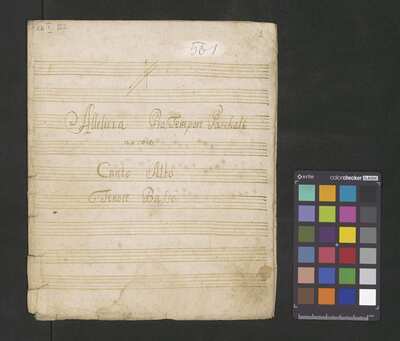 561
Alleluia Pro Tempore Paschali
Canto Alto
Tenore Basso
x-rite colorchecker CLASSIC